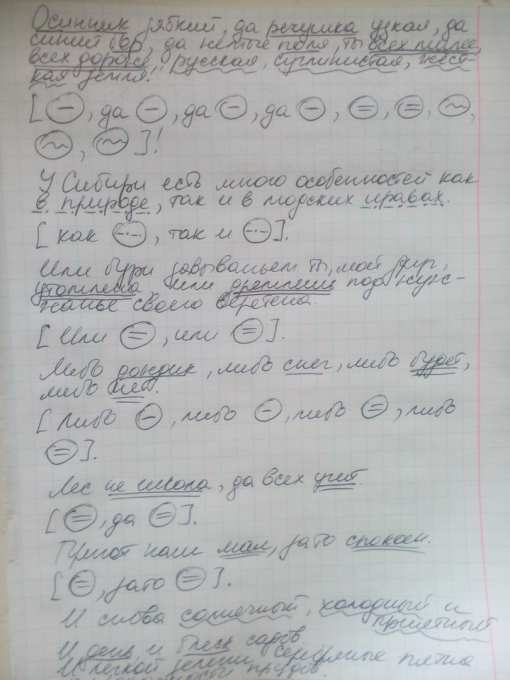 Осинник зябкий, да речушка узкая, да
синий бор, да желтые поля, ты всех милее,
всех дороже, русская, суглинистая, жёст-
кая земля!
[ – , да – , да – , да – , = , = , ~ ,
~ , ~ ]!
У Сибири есть много особенностей как
в природе, так и в людских нравах.
[ как –·– , так и –·– ].
Или бури завываньем ты, мой друг,
утомлена, или дремлешь под жуж-
жанье своего веретена.
[ Или = , или = ].
Либо дождик, либо снег, либо будет,
либо нет.
[ Либо – , либо – , либо = , либо
= ].
Лес не школа, да всех учит.
[ = , да = ].
Приют наш мал, зато спокоен.
[ = , зато = ].
И снова солнечный, холодный и
И день и блеск садов
И легкой зелени, серебряные пятна
прудов.